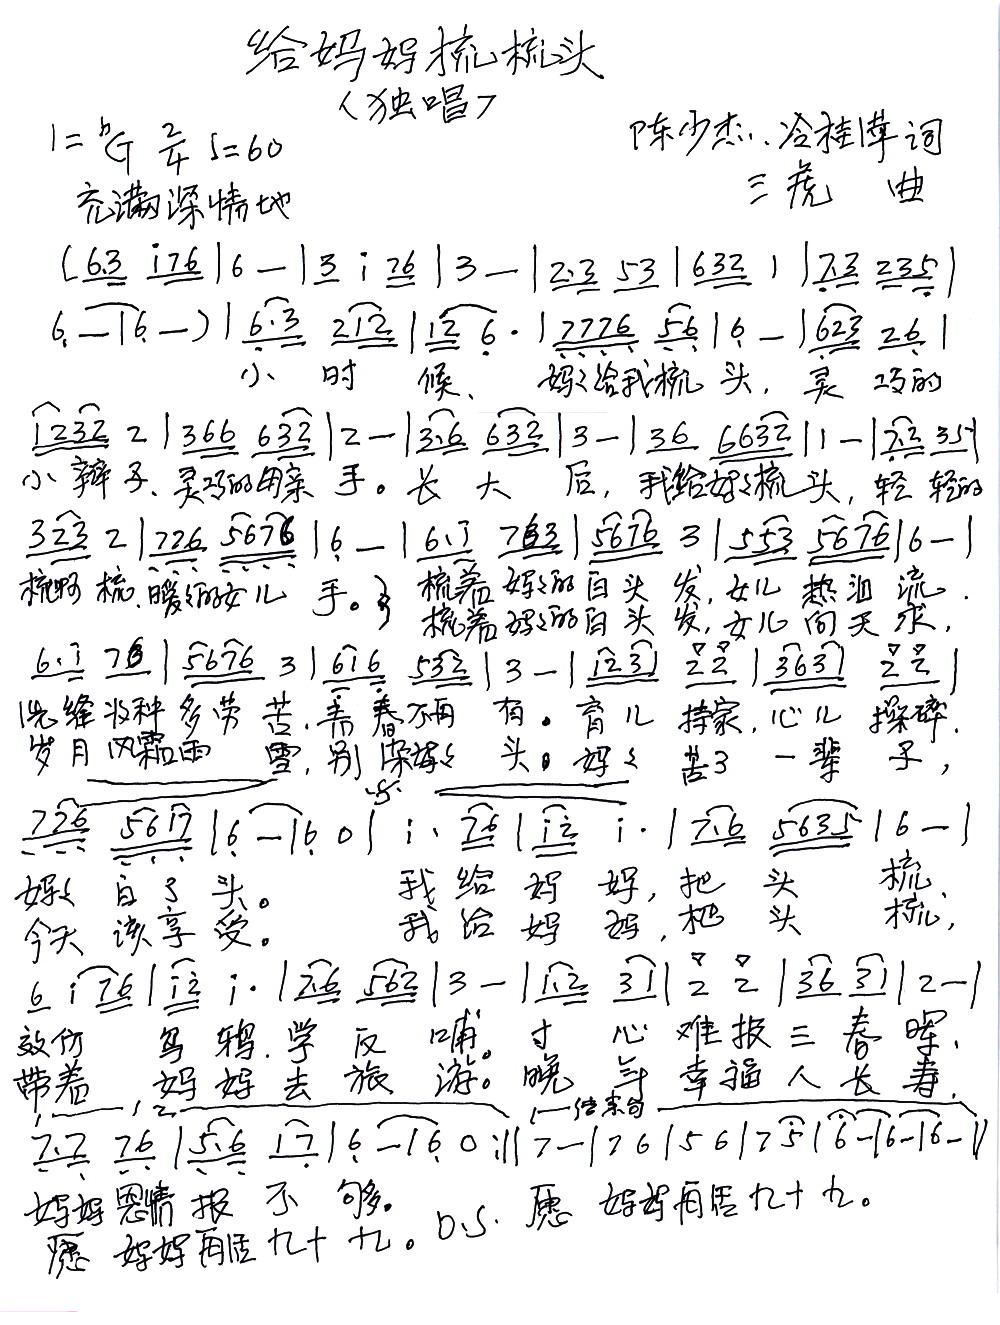 给妈妈梳梳头
〈独唱〉
1=ᵇG 2/4 ♩=60
陈少杰、冷桂萍 词
充满深情地
三虎 曲
(6.3 i76|6 —|3 i 76|3 —|2.3 53|632 1|7.3 235|
6 —|6 —)|6.3 212|12 6·|7776 56|6 —|623 26|
小 时 候、 妈妈给我梳 头, 灵 巧的
1232 2|366 632|2 —|3.6 632|3 —|36 6632|1 —|7.2 35|
小 辫 子、灵巧的母亲 手。长 大 后, 我给妈妈梳 头, 轻 轻的
323 2|726 5676|6 —|6.i 763|5676 3|553 5676|6 —|
梳啊 梳、暖暖的女儿 手。 梳着 妈妈的白头 发, 女儿 热泪 流.
梳着 妈妈的白头 发, 女儿 向天 求,
6.i 76|5676 3|616 532|3 —|1231 22|3631 22|
洗缝 多劳 苦, 青春不再 有。育儿 持家, 心儿 操碎.
岁月风霜雨 雪, 别染妈妈 头。妈妈 苦了 一辈 子,
726 5617|6 —|6 0|i· 76|i2 i·|7.6 5635|6 —|
妈妈 白了 头。 我 给 妈 妈, 把 头 梳、
今天 该享 受。 我 给 妈 妈, 把 头 梳,
6 i 76|i2 i·|7.6 562|3 —|1.2 31|2 2|36 31|2 —|
效仿 乌 鸦、学 反 哺。寸 心 难报三 春 晖、
带着 妈 妈 去 旅 游。晚 年 幸福人 长 寿,
1. 2. 结束句
7.7 76|5.6 17|6 —|6 0:‖7 —|7 6|5 6|7 5|6 —|6 —|6 —‖
妈妈恩情 报 不 够。
D.S. 愿 妈妈再活九十 九。
愿 妈妈再活 九十 九。